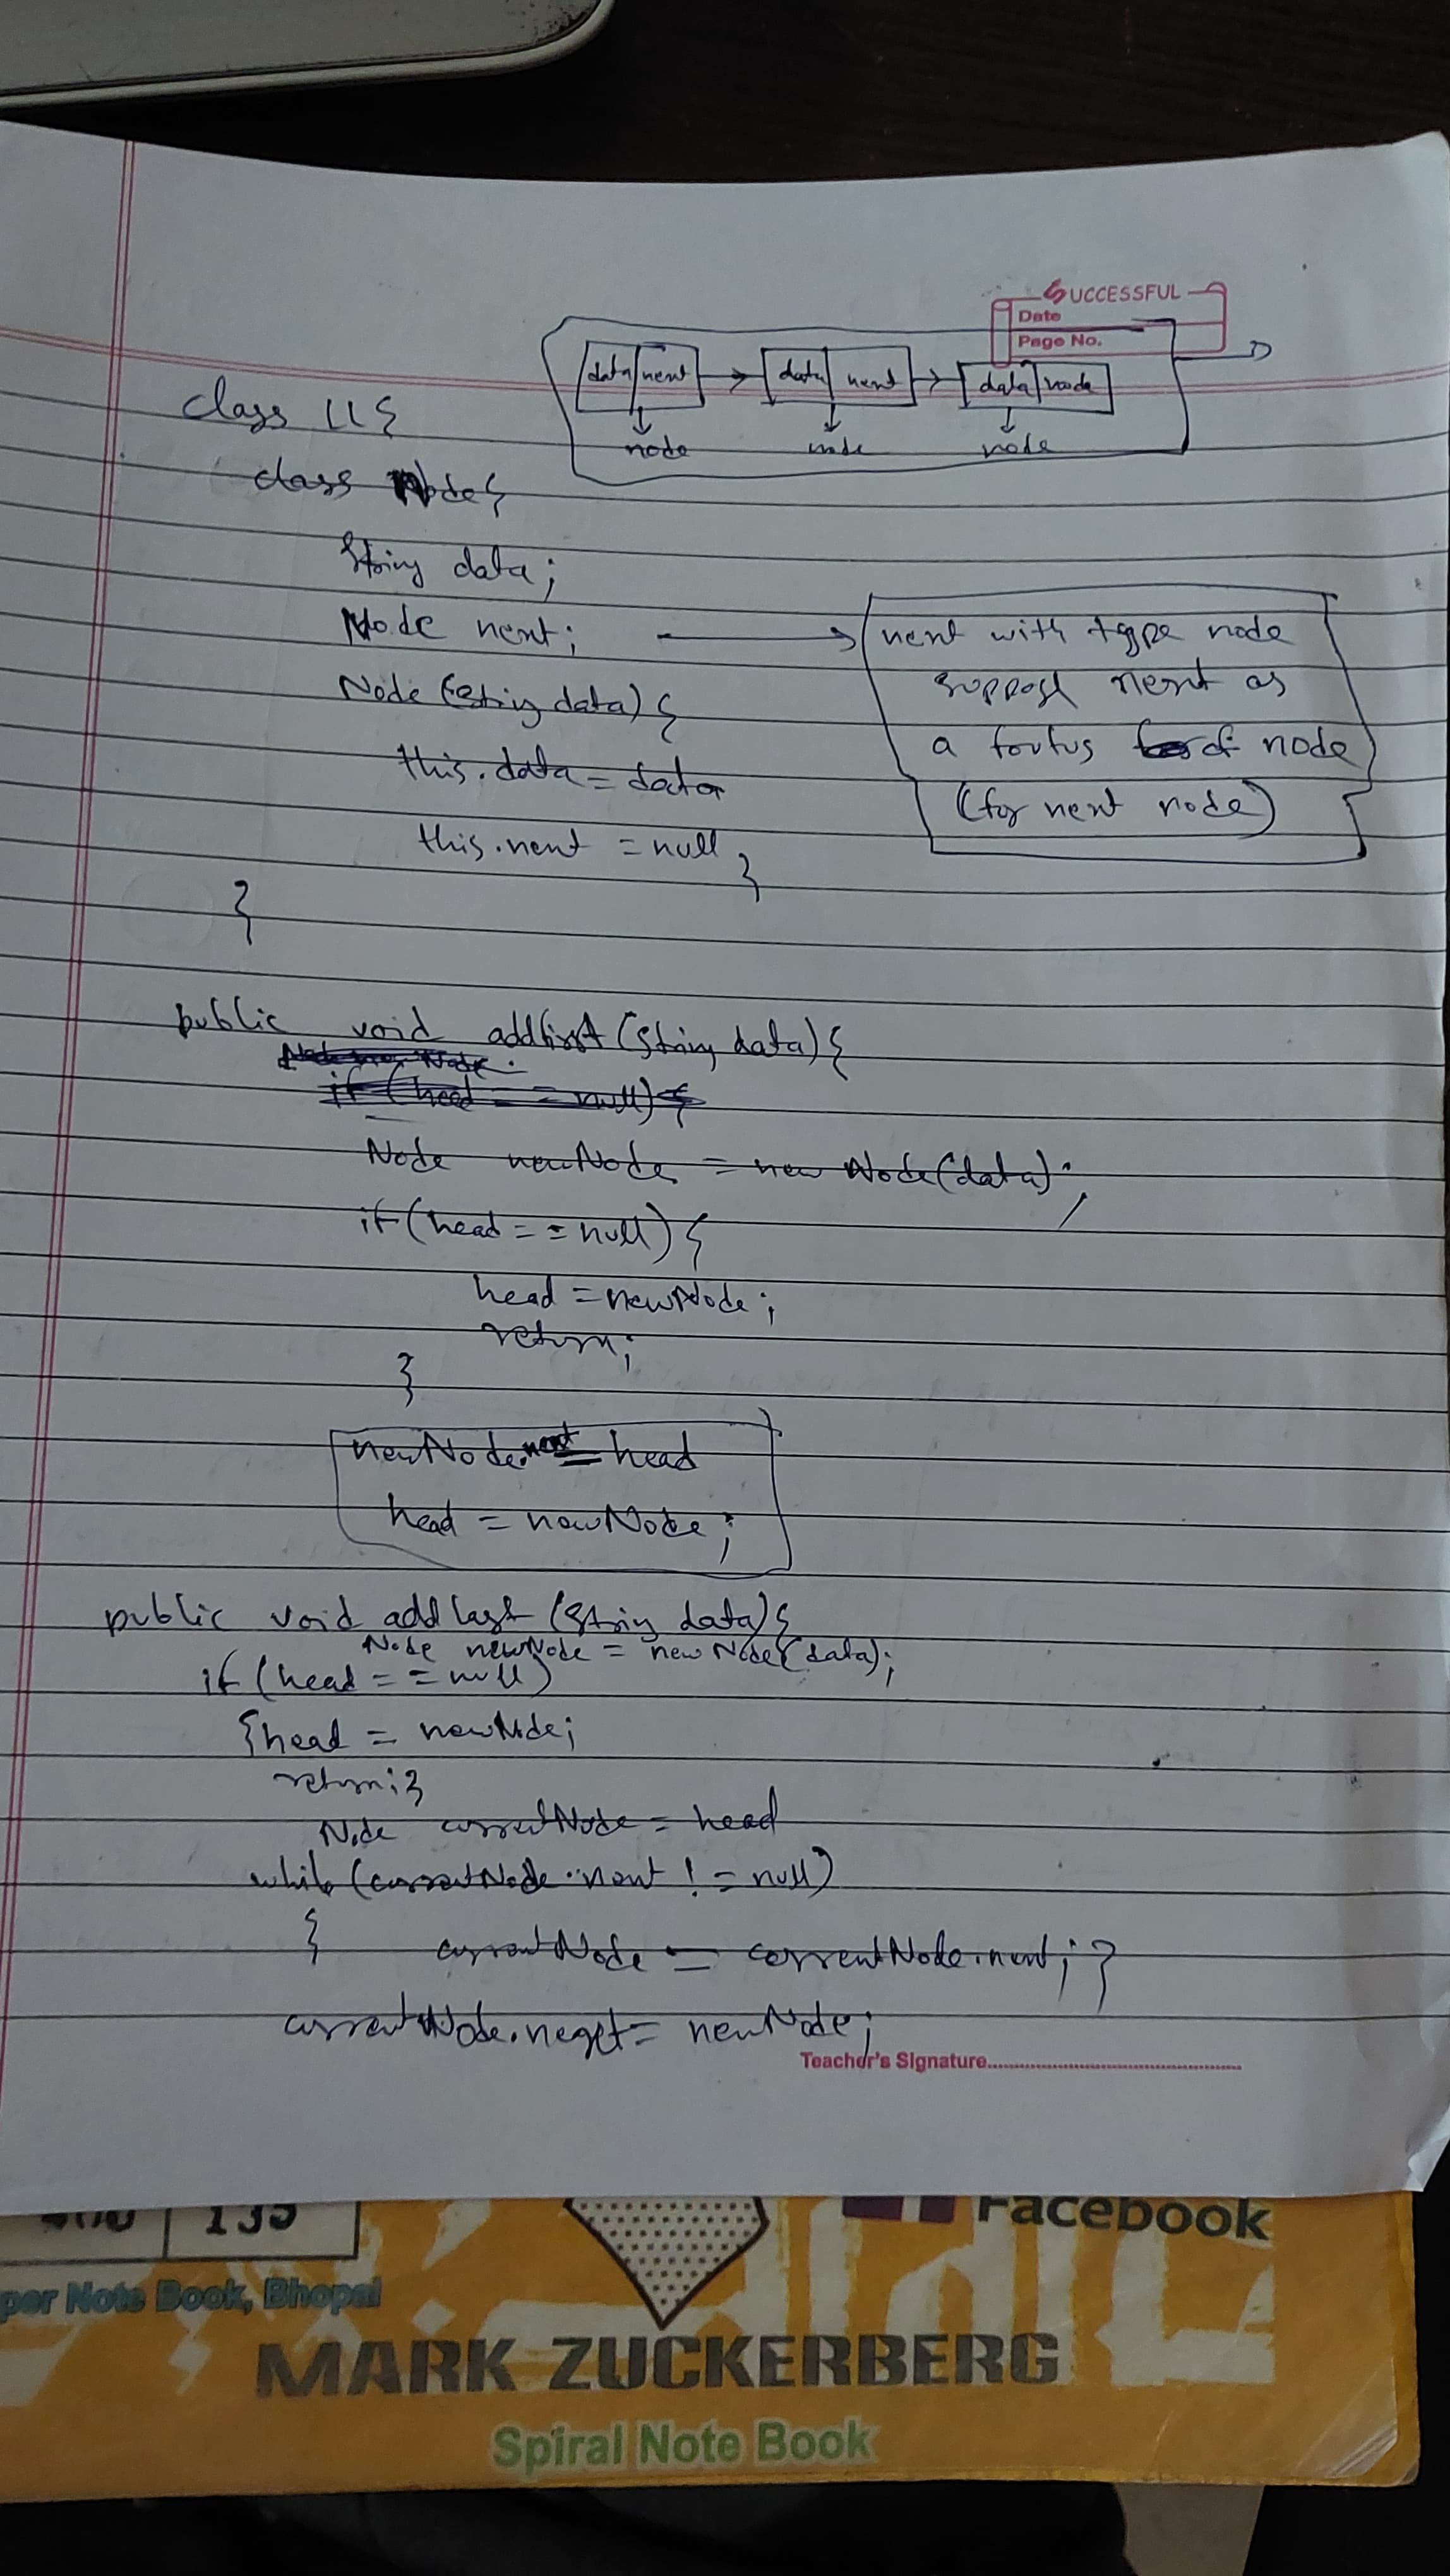 SUCCESSFUL
Date
Page No.
data next data next data node
node node node
class LL{
class Node{
String data;
Node next;
next with type node
suppose next as
a of node
(for next node)
Node (String data) {
this.data = data
this.next = null }
}
public void addfirst (String data) {
if (head == null) {
Node newNode = new Node(data);
if (head == null) {
head = newNode;
return;
}
newNode.next = head
head = newNode;
public void addlast (String data) {
Node newNode = new Node(data);
if (head == null)
{head = newNode;
return;}
Node currentNode = head
while (currentNode.next != null)
{ currentNode = currentNode.next; }
currentNode. = newNode;
Teacher's Signature
135
Facebook
per Note Book, Bhopal
MARK ZUCKERBERG
Spiral Note Book